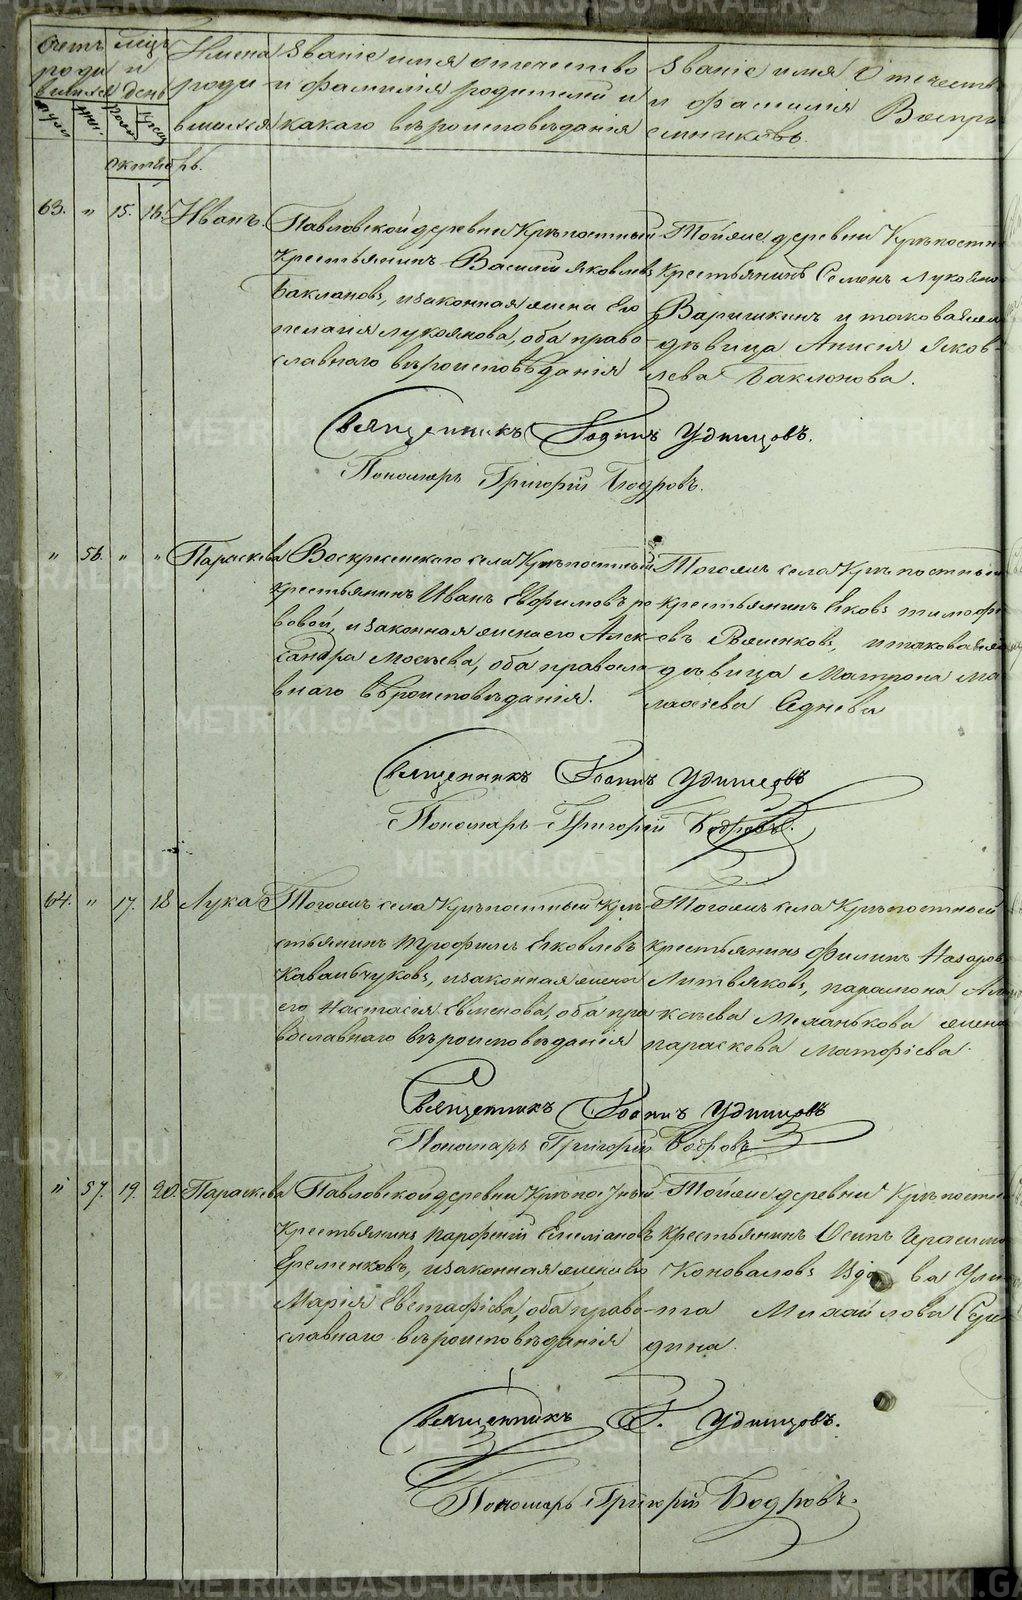 Счетъ роди вшихся
муж. жен.
мѣцъ и день
рожд. крещ.
Имена роди вшихся
Званіе имя отечество
и фамилія родителей и
какаго вѣроисповѣданія
Званіе имя Отечеств
и фамилія Воспрі
емниковъ.
октябрь.
63. " 15. 16. Иванъ.
Павловской деревни Крѣпостный
Крестьянинъ Василій Яковлевъ
Баклановъ, и законная жена Его
пелагія лукоянова, оба право-
славнаго вѣроисповѣданія
Тойже деревни Крѣпостны
Крестьянинъ Семенъ Лукояно
Варишкинъ и таковаяже
дѣвица Анисія Яков-
лева Баклонова.
Священникъ Іоаннъ Удинцовъ.
Пономарь Григорій Бодровъ.
" 56. " " Параскева
Воскресенскаго села Крѣпостный
крестьянинъ Иванъ Евфимовъ
вовой, и законная жена его Алек
сандра Мосѣева, оба правосла
внаго вѣроисповѣданія.
Тогожъ села Крѣпостный
крестьянинъ Яковъ тимофе
евъ и таковаяже
дѣвица Матрона Ма
лафіева Седнева
Священникъ Іоаннъ Удинцовъ
Пономарь Григорій Бодровъ.
64. " 17. 18 Лука
Тогожъ села Крѣпостный Кре-
стьянинъ Трофимъ Яковлевъ
Ковальчуковъ, и законная жена
его Настасія Евменова, оба пра
вославнаго вѣроисповѣданія
Тогожъ села Крѣпостный
крестьянинъ Филипъ Назаровъ
Литвяковъ, парамона Але
ксѣева Меланькова жена
параскева Матфіева.
Священникъ Іоаннъ Удинцовъ
Пономарь Григорій Бодровъ
" 57. 19. 20. Параскева
Павловской деревни Крѣпостный
Крестьянинъ Парфеній Емеліановъ
Еременковъ, и законная жена его
Марія Евстафіева, оба право-
славнаго вѣроисповѣданія
Тойже деревни Крѣпостны
крестьянинъ Осипъ Герасимо
Коноваловъ Ули
та Михайлова Сере
дина.
Священникъ І. Удинцовъ.
Пономарь Григорій Бодровъ.
METRIKI.GASO-URAL.RU